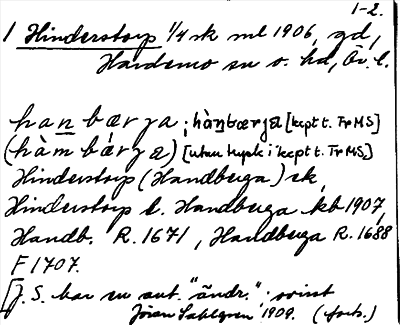 1-2.
1 Hinderstorp 1/4 sk ml 1906, gd,
Hardemo sn o. hd, Ör. l.
han bær ya ; hànbærjα [kcpt t. Fr MS]
(hàm bær yα) [utan tryck i kcpt t. Fr MS]
Hinderstorp (Handberga) sk,
Hinderstorp l. Handberga kb 1907,
Handb. R. 1671, Handberga R. 1688
F 1707.
[J. S. har en ant. "ändr."
Jöran Sahlgren 1909. (forts.)